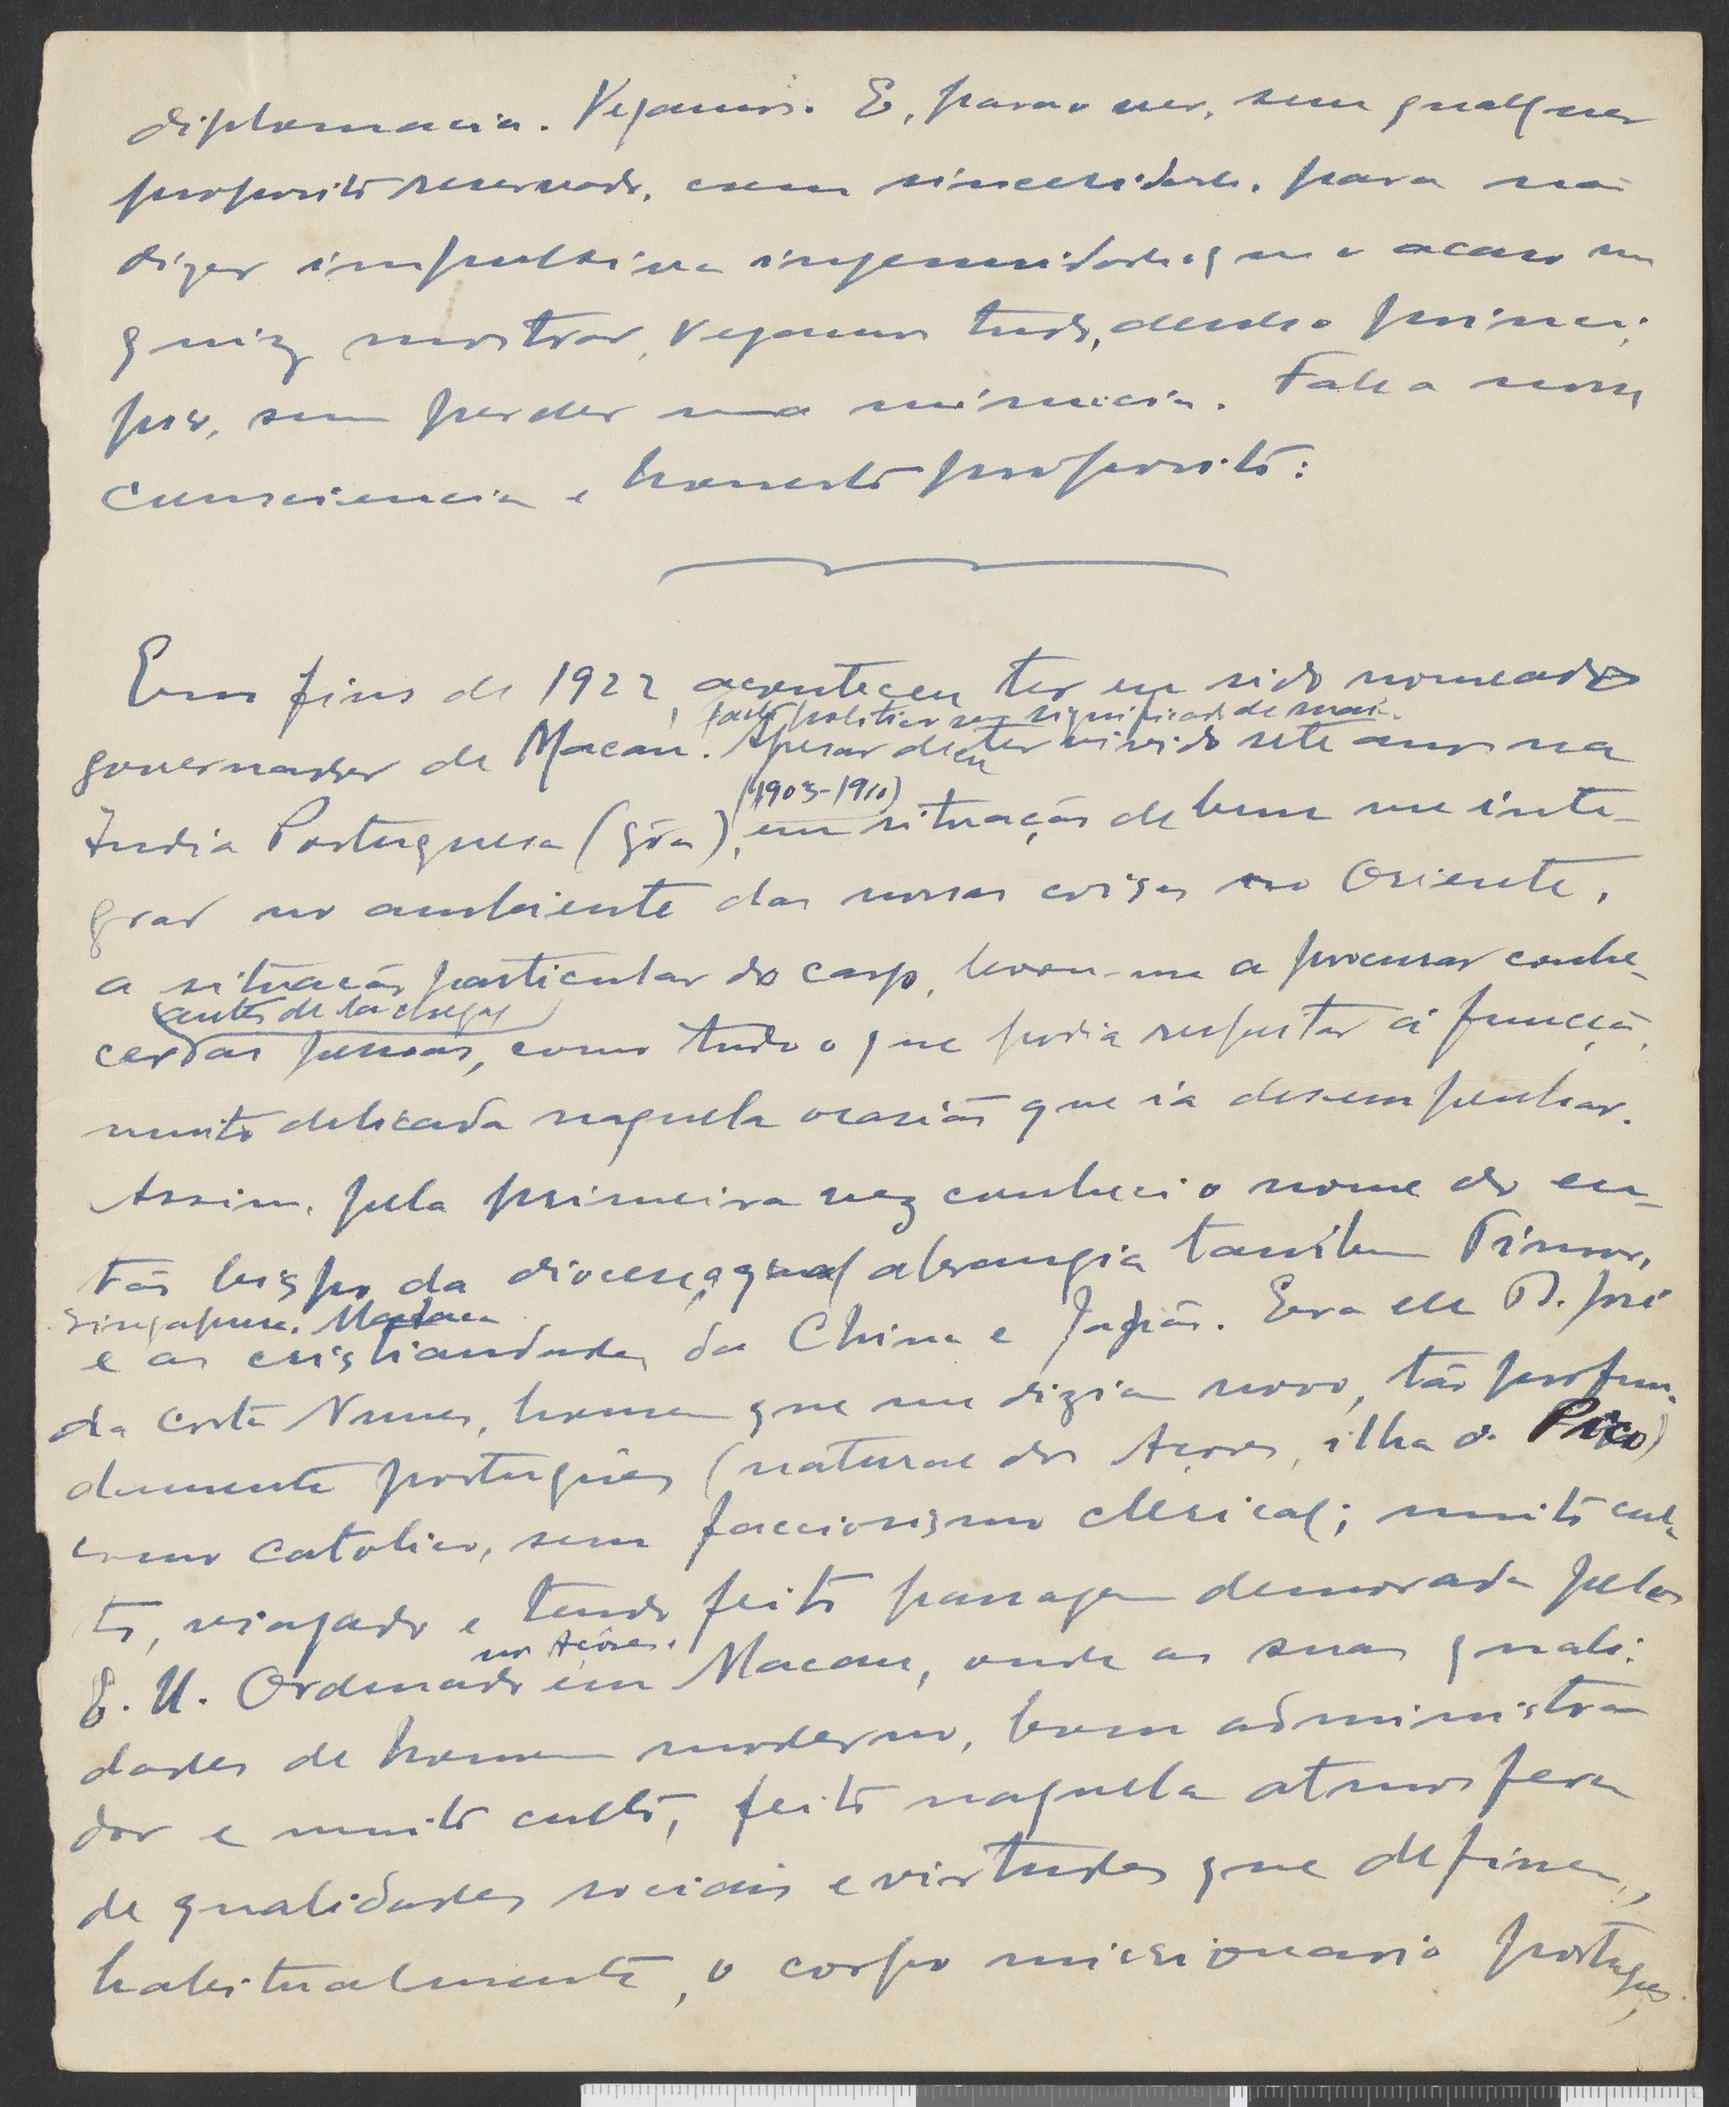 diplomacia. Vejamos. E, para o ver, sem qualquer
proposito reservado, com sinceridade, para não
dizer impulsiva ingenuidade, que o acaso me
quiz mostrar, vejamos tudo, desde o princi-
pio, sem perder uma minucia. Fale a nossa
consciencia e honesto proposito:
Em fins de 1922, aconteceu ter eu sido nomeado
facto politico sem significado de maior.
governador de Macau. Apesar de eu ter vivido sete anos na
(1903-1910)
India Portuguesa (Gôa), em situação de bem me inte-
grar no ambiente das nossas coisas no Oriente,
a situação particular do cargo, levou-me a procurar conhe-
antes de lá chegar
cer das pessoas, como tudo o que podia respeitar á funcção,
muito delicada naquela ocasião que ia desempenhar.
Assim, pela primeira vez conheci o nome do en-
tão bispo da diocese, a qual abrangia tambem Timor,
Singapura, Malaca
e as cristiandades da China e Japão. Era ele D. José
da Costa Nunes, homem que me diziam novo, tão profun-
damente português (natural dos Açores, ilha do Pico)
como catolico, sem faccionismo clerical; muito cul-
to, viajado e tendo feito passagem demorada pelos
nos Açôres.
E. U. Ordenado em Macau, onde as suas quali-
dades de homem moderno, bom administra
dor e muito culto, feito naquela atmosfera
de qualidades sociais e virtudes que definem,
habitualmente, o corpo missionario português,